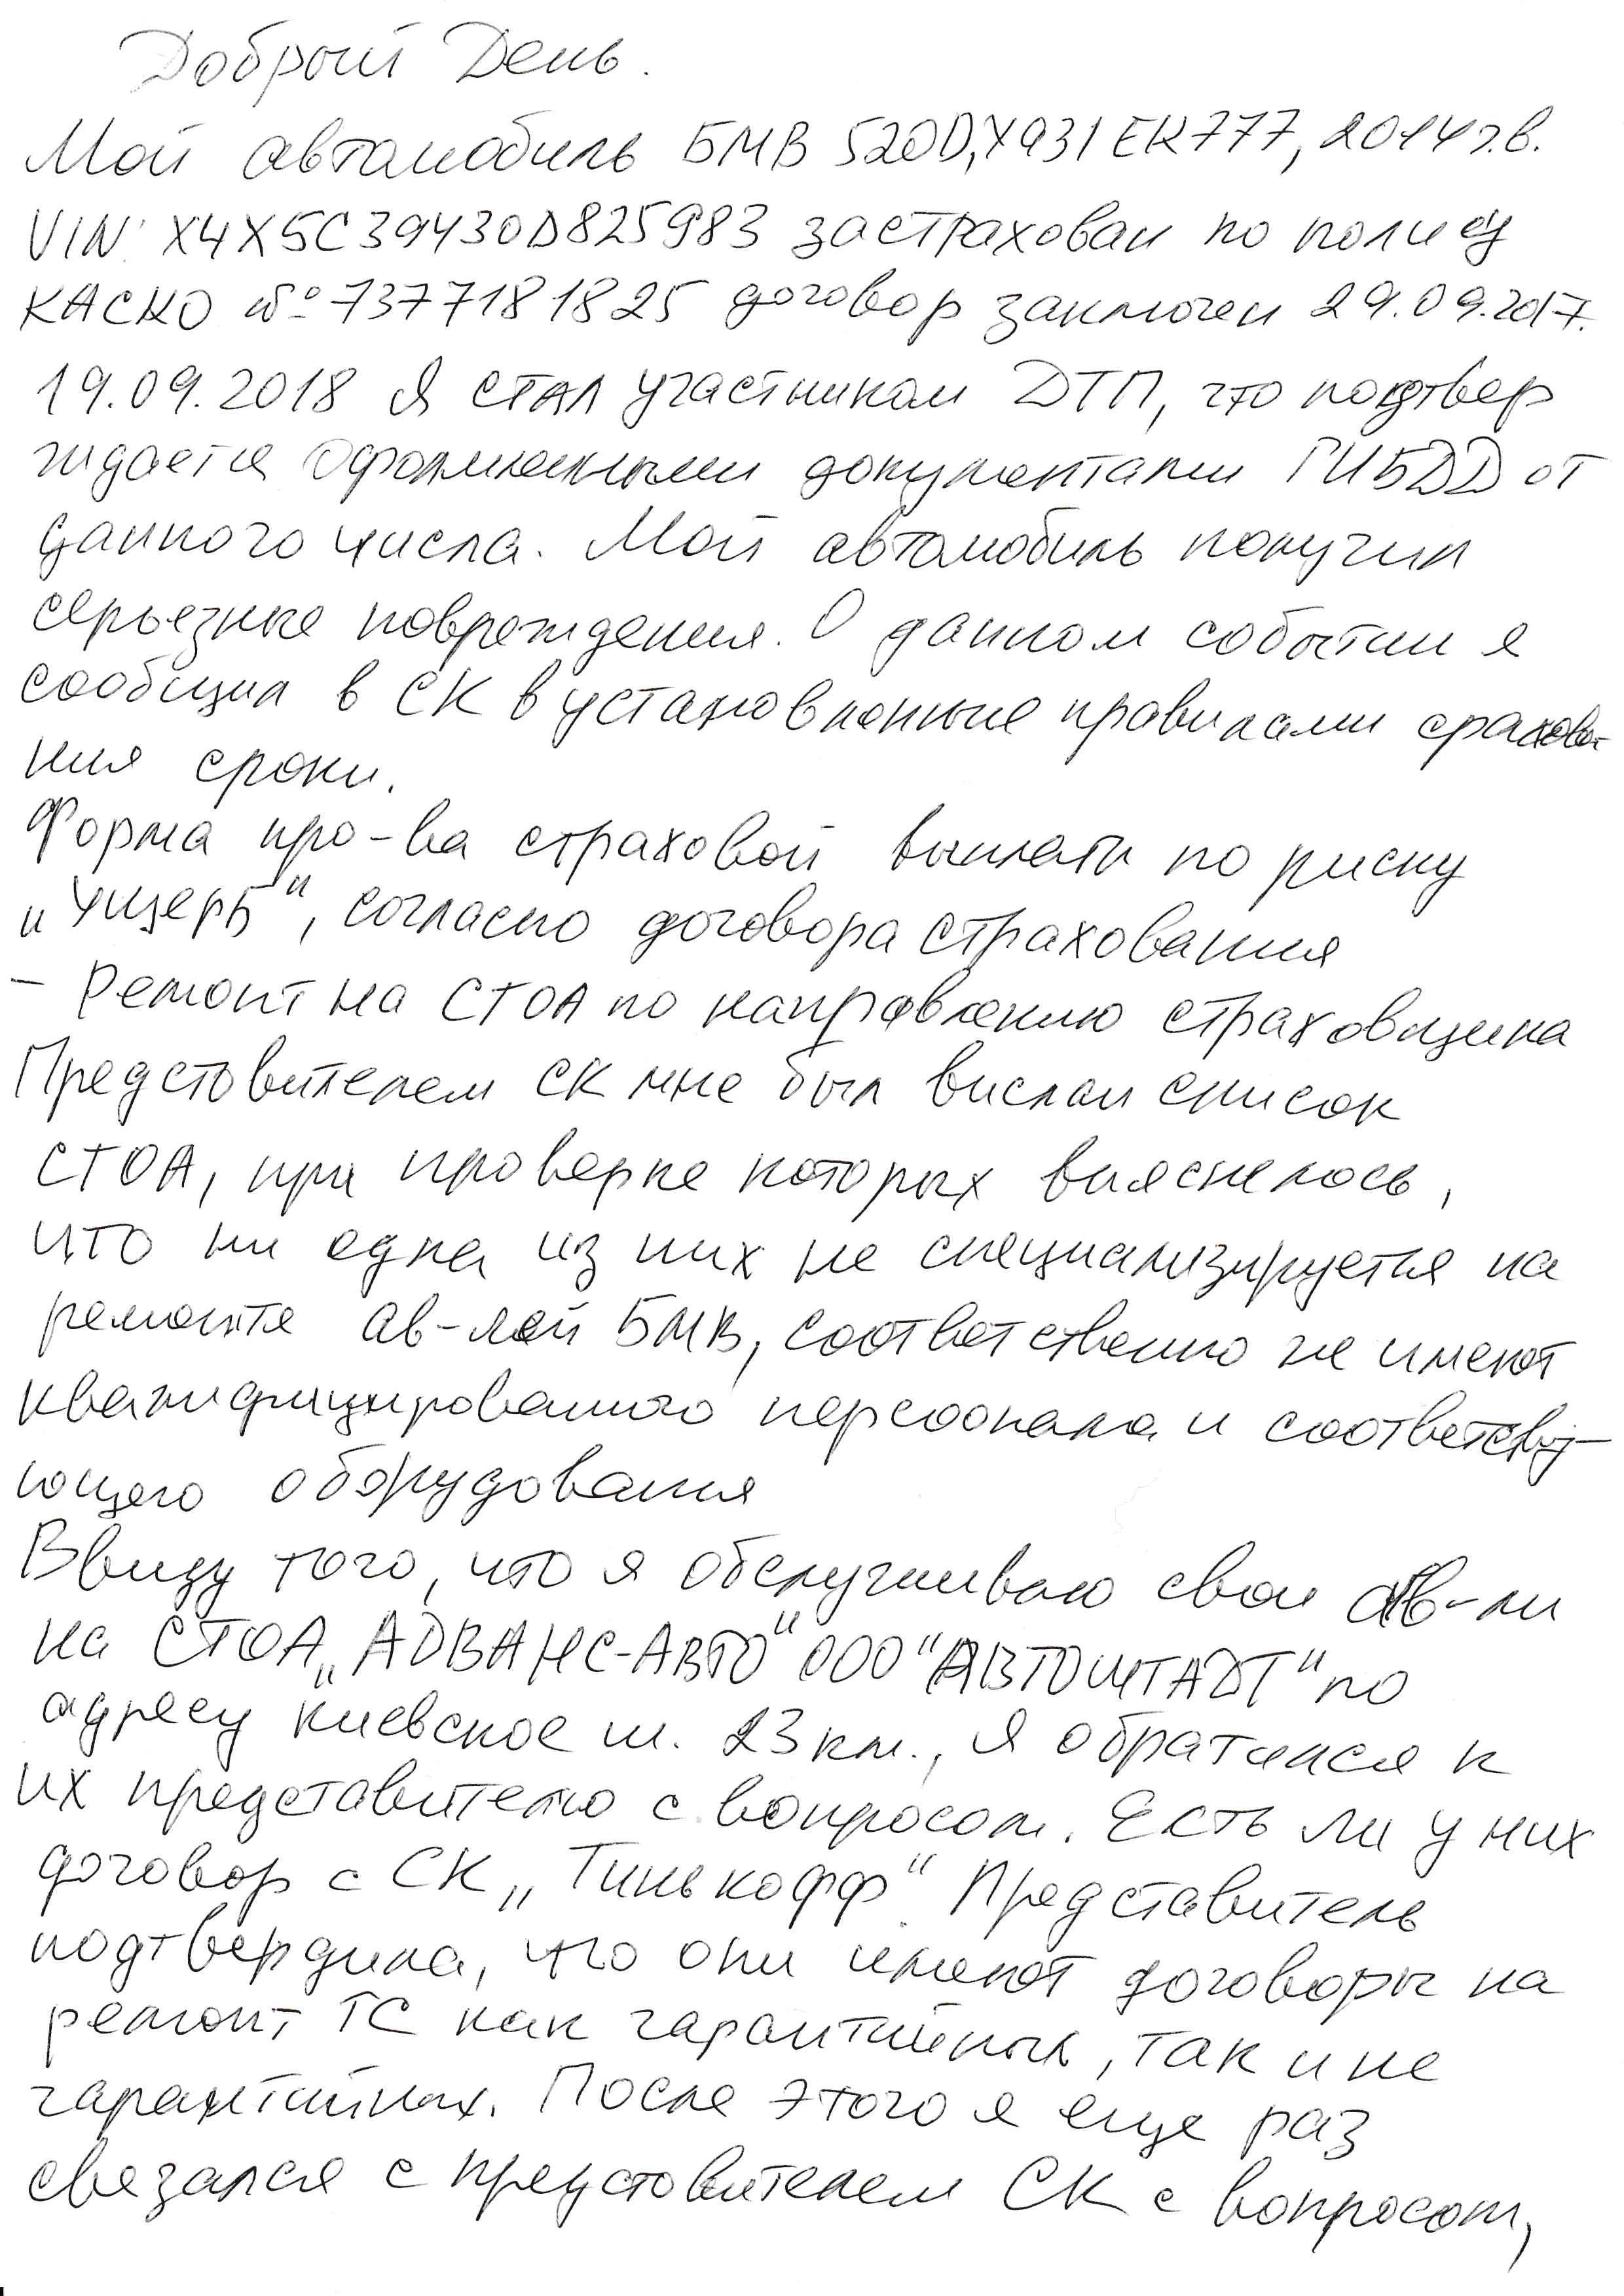 Добрый День.
Мой автомобиль БМВ 520D, У931ЕК777, 2014 г.в.
VIN: X4X5C39430D825983 застрахован по полису
КАСКО № 7377181825 договор заключен 29.09.2017.
19.09.2018 Я стал участником ДТП, что подтвер
ждается оформленными документами ГИБДД от
данного числа. Мой автомобиль получил
серьезные повреждения. О данном событии я
сообщил в СК в установленные правилами срахова-
ния сроки.
Форма про-ва страховой выплаты по риску
„Ущерб", согласно договора страхования
- Ремонт на СТОА по направлению страховщика
Представителем СК мне был выслан список
СТОА, при проверке которых выяснелось,
что ни одна из них не специализируется на
ремонте ав-лей БМВ, соответственно не имеют
квалифицированого персоонала и соответству-
ющего оборудования
Ввиду того, что я обслуживаю свои ав-ли
на СТОА „АДВАНС-АВТО" ООО "АВТОШТАДТ" по
адресу Киевское ш. 23 км., я обратился к
их представителю с вопросом. Есть ли у них
договор с СК „Тинькофф" Представитель
подтвердила, что они имеют договоры на
ремонт ТС как гарантийных, так и не
гарантийных. После этого я еще раз
связался с представителем СК с вопросом,